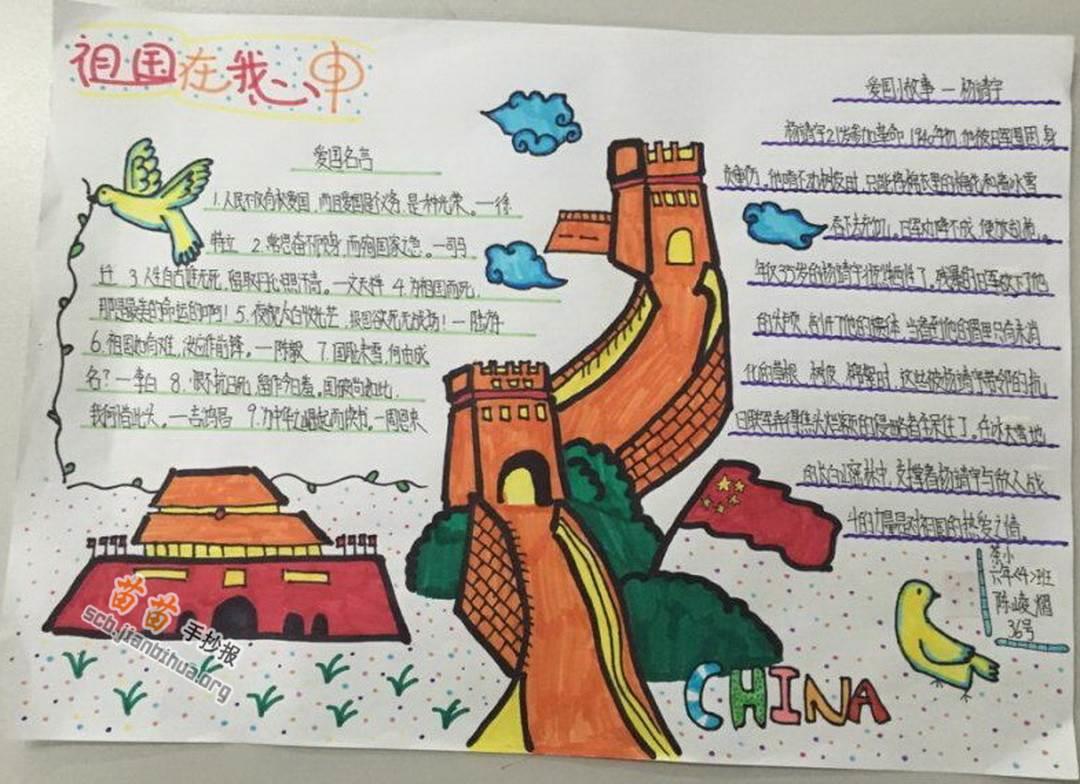 祖国在我心中
爱国名言
1.人民不仅有权爱国,而且爱国是个义务,是一种光荣。—徐
特立 2.常思奋不顾身,而殉国家之急。—司马
迁 3.人生自古谁无死,留取丹心照汗青。—文天祥 4.为祖国而死,
那是最美的命运的啊!5.夜视太白收光芒,报国欲死无战场!—陆游
6.祖国如有难,汝应作前锋。—陈毅 7.国耻未雪,何由成
名?—李白 8.恨不抗日死,留作今日羞。国破尚如此,
我何惜此头。—吉鸿昌 9.为中华之崛起而读书。—周恩来
爱国小故事 — 杨靖宇
杨靖宇21岁参加革命,1940年初,他被日军围困,身
负重伤。他啃不动树皮时,只能将棉衣里的棉花和着冰雪
吞下去充饥。日军劝降不成,便放乱枪。
年仅35岁的杨靖宇壮烈牺牲了。残暴的日军铰下了他
的头颅,剖开了他的遗体,当看到他的胃里只有未消
化的草根、树皮、棉絮时,这些被杨靖宇带领的抗
日联军弄得焦头烂额的侵略者有呆住了。在冰天雪地
的长白山密林中,支撑着杨靖宇与敌人战
斗的力量是对祖国的热爱之情。
六年<4>班
36号
CHINA
苗苗
手抄报
scb.jianbihua.org